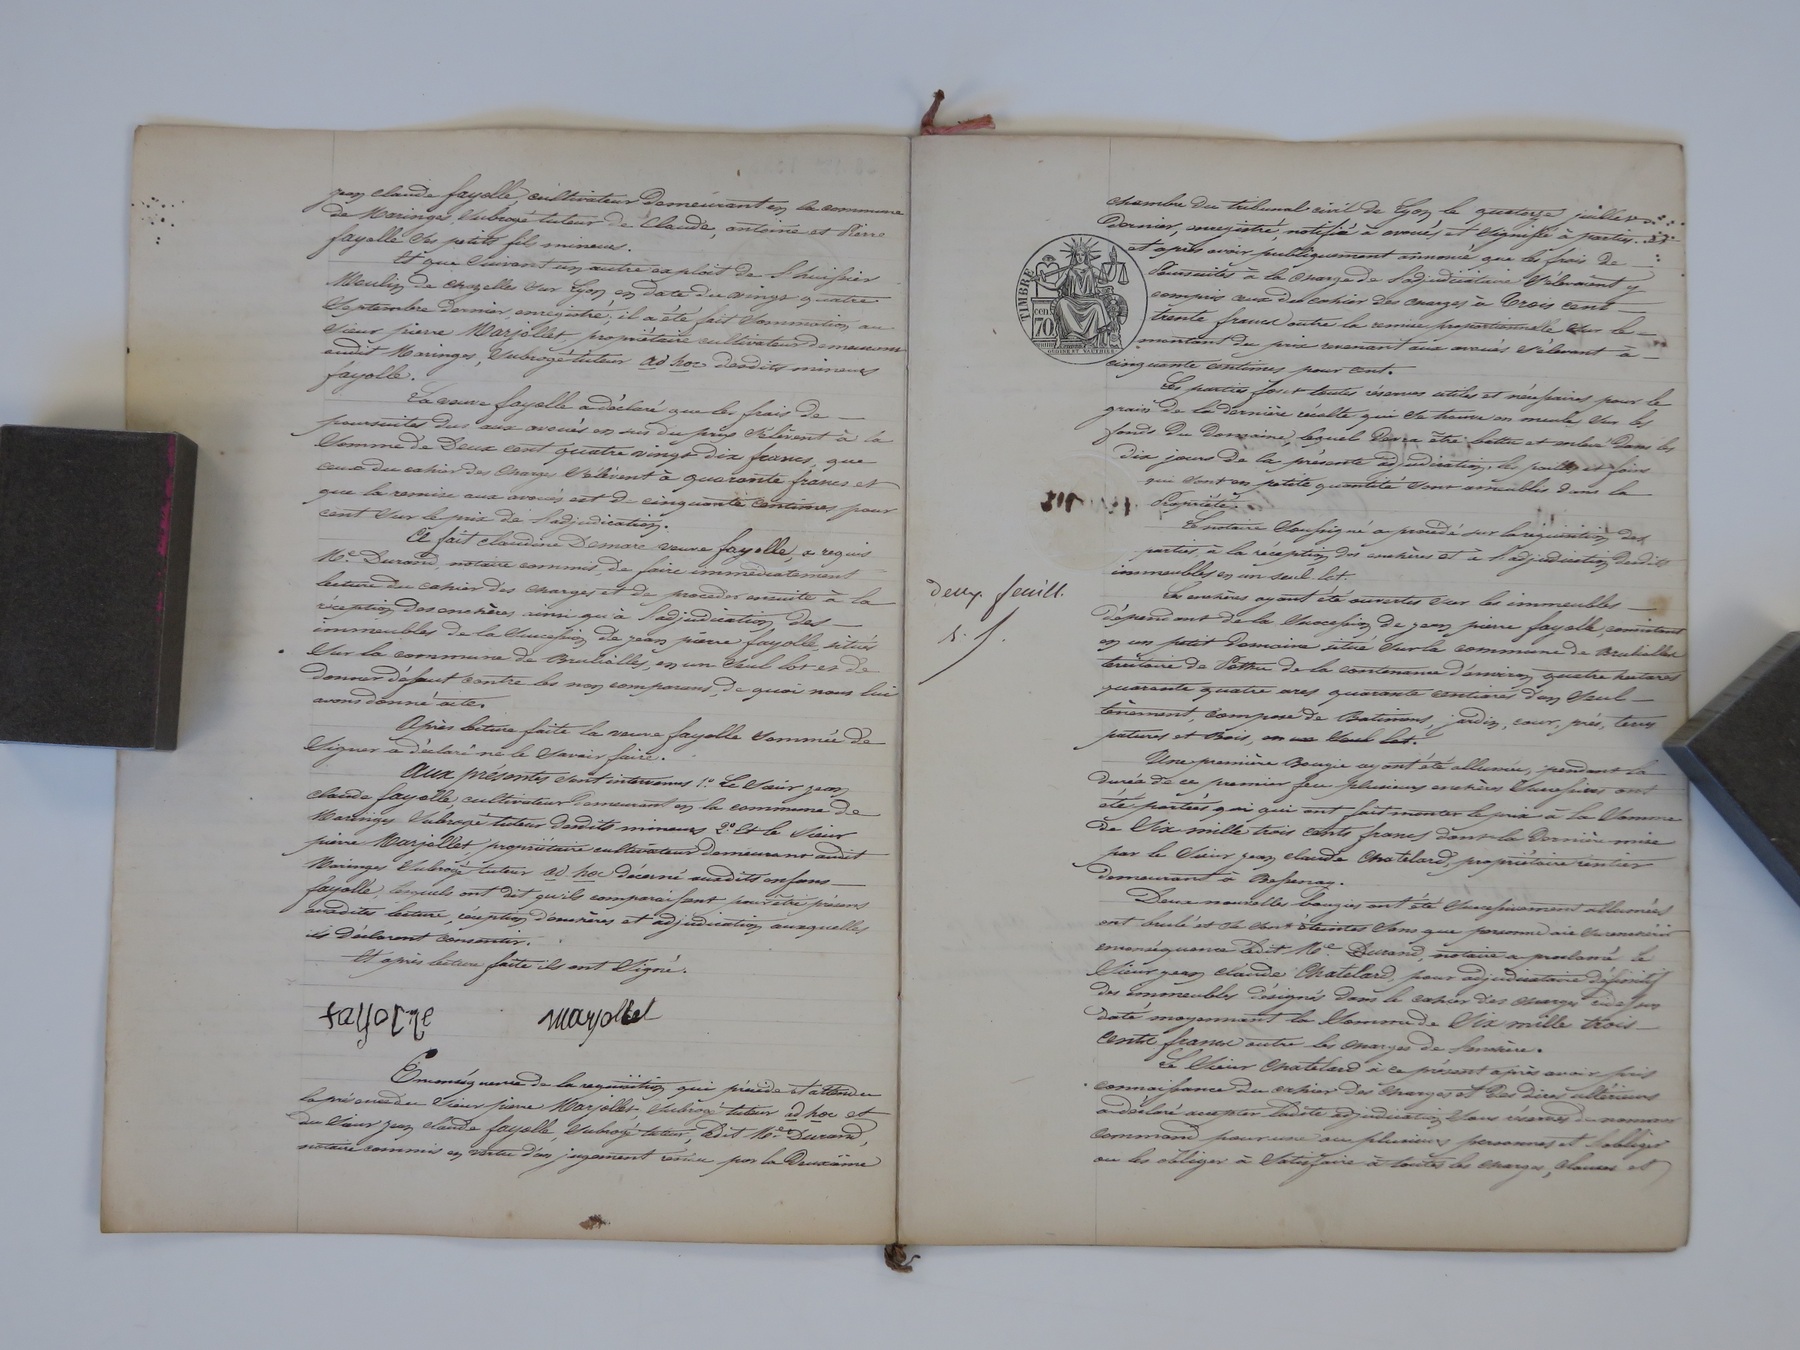 jean claude fayolle, cultivateur demeurant en la commune
de Maringes, subrogé tuteur de Claude, antoine et Pierre
fayolle ses petits fil mineurs.
Et que suivant un autre exploit de l'huissier
Moulin de chazelles sur Lyon en date du vingt quatre
Septembre dernier, enregistré, il a été fait sommation au
sieur pierre Marjollet, propriétaire cultivateur demeurant
audit Maringes, subrogé tuteur ad hoc desdits mineurs
fayolle.
La veuve fayolle a déclaré que les frais de
poursuites dus aux avoués en sus du prix s'élèvent à la
somme de Deux cent quatre vingt dix francs, que
ceux du cahier des charges s'élèvent à quarante francs et
que la remise aux avoués est de cinquante centimes pour
cent sur le prix de l'adjudication.
Ce fait claudine Demare veuve fayolle, a requis
Me. Durand, notaire commis, de faire immédiatement
lecture du cahier des charges et de procéder ensuite à la
réception des enchères ainsi qu'à l'adjudication des
immeubles de la succession de jean pierre fayolle, situés
sur la commune de Brulliolles, en un seul lot et de
donner défaut contre les non comparans, de quoi nous lui
avons donné acte.
Après lecture faite la veuve fayolle sommée de
signer a déclaré ne le savoir faire.
Aux présentes sont intervenus 1.° Le sieur jean
claude fayolle, cultivateur demeurant en la commune de
Maringes subrogé tuteur desdits mineurs 2.° Et le sieur
pierre Marjollet propriétaire cultivateur demeurant audit
Maringes subrogé tuteur ad hoc décerné auxdits enfans
fayolle, lesquels ont dit qu'ils comparaissent pour être présens
auxdites lecture, réception d'enchères et adjudication auxquelles
ils déclarent consentir.
Et après lecture faite ils ont signé.
fayolle marjollet
En conséquence de la requisition qui précède et attendu
la présence du sieur pierre Marjollet, subrogé tuteur ad hoc et
du sieur jean claude fayolle, subrogé tuteur, Dit Me. Durand,
notaire commis en vertu d'un jugement rendu par la Deuxième
chambre du tribunal civil de Lyon le quatorze juillet
dernier, enregistré, notifié à avoués et signifié à parties.
et après avoir publiquement annoncé que les frais de
poursuites à la charge de l'adjudicataire s'élevaient y
compris ceux du cahier des charges à trois cent
trente francs outre la remise proportionnelle sur le
montant du prix revenant aux avoués s'élevant à
cinquante centimes pour cent.
TIMBRE
cen
70
Les parties font toutes réserves utiles et nécessaires pour le
grain de la dernière récolte qui se trouve en meule sur les
fonds du domaine, lequel devra être battu et enlevé dans les
dix jours de la présente adjudication, les pailles et foins
qui sont en petite quantité sont ameublis dans la
Propriété.
Le notaire soussigné a procédé sur la réquisition des
parties, à la réception des enchères et à l'adjudication desdits
immeubles en un seul lot.
deux. feuill.
Les enchères ayant été ouvertes sur les immeubles
dépendant de la succession de jean pierre fayolle, consistant
en un petit domaine situé sur la commune de Brulliolles
territoire de de la contenance d'environ quatre hectares
quarante quatre ares quarante centiares d'un seul
tènement, composé de Batimens, jardin, cour, prés, terres
patures et Bois, en un seul lot.
Une première Bougie ayant été allumée, pendant la
durée de ce premier feu plusieurs enchères successives ont
été portées qui ont fait monter le prix à la somme
de Six mille trois cents francs dont la dernière mise
par le sieur jean claude Chatelard, propriétaire rentier
demeurant à Bessenay.
Deux nouvelles bougies ont été successivement allumées
ont brulé et se sont éteintes sans que personne aie surenchéri
en conséquence Dit Me. Durand, notaire a proclamé le
sieur jean claude Chatelard, pour adjudicataire définitif
des immeubles désignés dans le cahier des charges
date moyennant la somme de Six mille trois
cents francs outre les charges de l'enchère.
Le sieur Chatelard à ce présent après avoir pris
connaissance du cahier des charges et des dires ultérieurs
a déclaré accepter ladite adjudication sous réserve de nommer
command pour une ou plusieurs personnes et s'obliger
ou les obliger à satisfaire à toutes les charges, clauses et